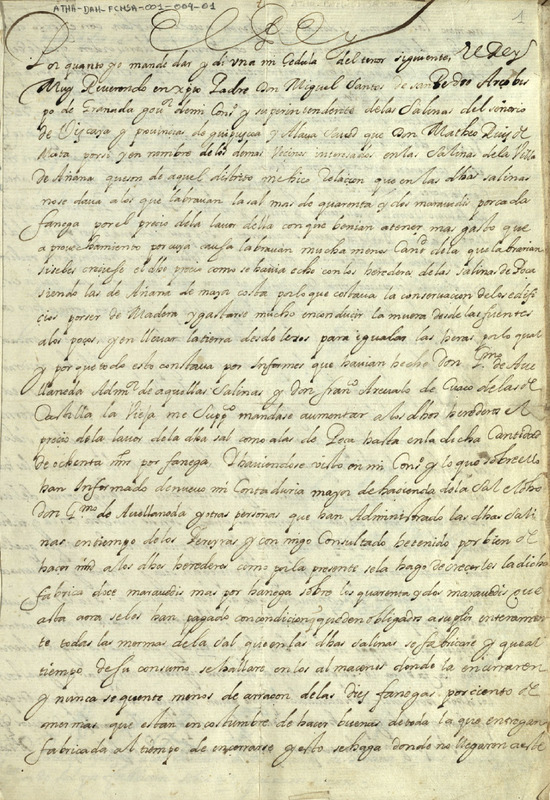 ATHA-DAH-FCHSA-001-004-01
1
El Rey
Por quanto yo mande dar y di vna mi Cedula del tenor siguiente, El Rey
Muy Reverendo en xpto Padre Don Miguel Santos de san Pedro Arçobis
po de Granada gou.r demi Cons.o y superintendente de las Salinas del señorio
de Vizcaya y provincias de guipuzcoa y Alaua Saved que Don Matheo Ruiz de
Mota por si y en nombre de los demas Vecinos interesados en las Salinas dela Villa
de Añana que son de aquel distrito me hiço Relacion que en las dhas salinas
no se daua a los que labrauan la sal mas de quarenta y dos maravedis por cada
fanega por el precio dela lauor della con que benian a tener mas gasto que
aprouechamiento por cuya causa labrauan mucha menos Cant.d dela que labrarian
si se les creciesse el dho precio como se hauia echo con los herederos de las salinas de Poça
siendo las de Añana de mayor costa por lo que costaua la conseruacion de los edifi
cios por ser de Madera y gastarse mucho en conducir la muera desde las fuentes
a los poços, y en lleuar la tierra desde lexos para igualar las heras, por lo qual
y por que todo esto constaua por Informes que hauian hecho Don G.mo de Ave
llaneda Adm.or de aquellas Salinas y Don fran.co Areualo de Çuaço de las de
Castilla la Vieja me Supp.co mandase aumentar a los dhos herederos el
precio dela lauor dela dha sal como a las de Poça hasta en la dicha Cantidad
de ochenta mrs por fanega. Y hauiendose visto en mi Cons.o y lo que sobre ello
han Informado de nuevo mi Contaduria mayor de hacienda dela Sal el dho
Don G.mo de Auellaneda y otras personas que han Administrado las dhas Sali
nas en tiempo de los Pereyras y con migo Consultado he tenido por bien de
hacer md a los dhos herederos como por la presente se la hago de crecerles la dicha
fabrica doce maravedis mas por hanega sobre los quarenta y dos maravedis que
asta aora se les han pagado con condicion que queden obligados a suplir enteramen
te todas las mermas dela sal que en las dhas salinas se fabricare y que al
tiempo de su consumo se hallare en los almacenes donde la encerraren
y nunca se quente menos de a rraçon de las diez fanegas por ciento de
mermas que estan en costumbre de hacer buenas de toda la que entregan
fabricada al tiempo de encerrarse y esto se haga donde no llegaron a este